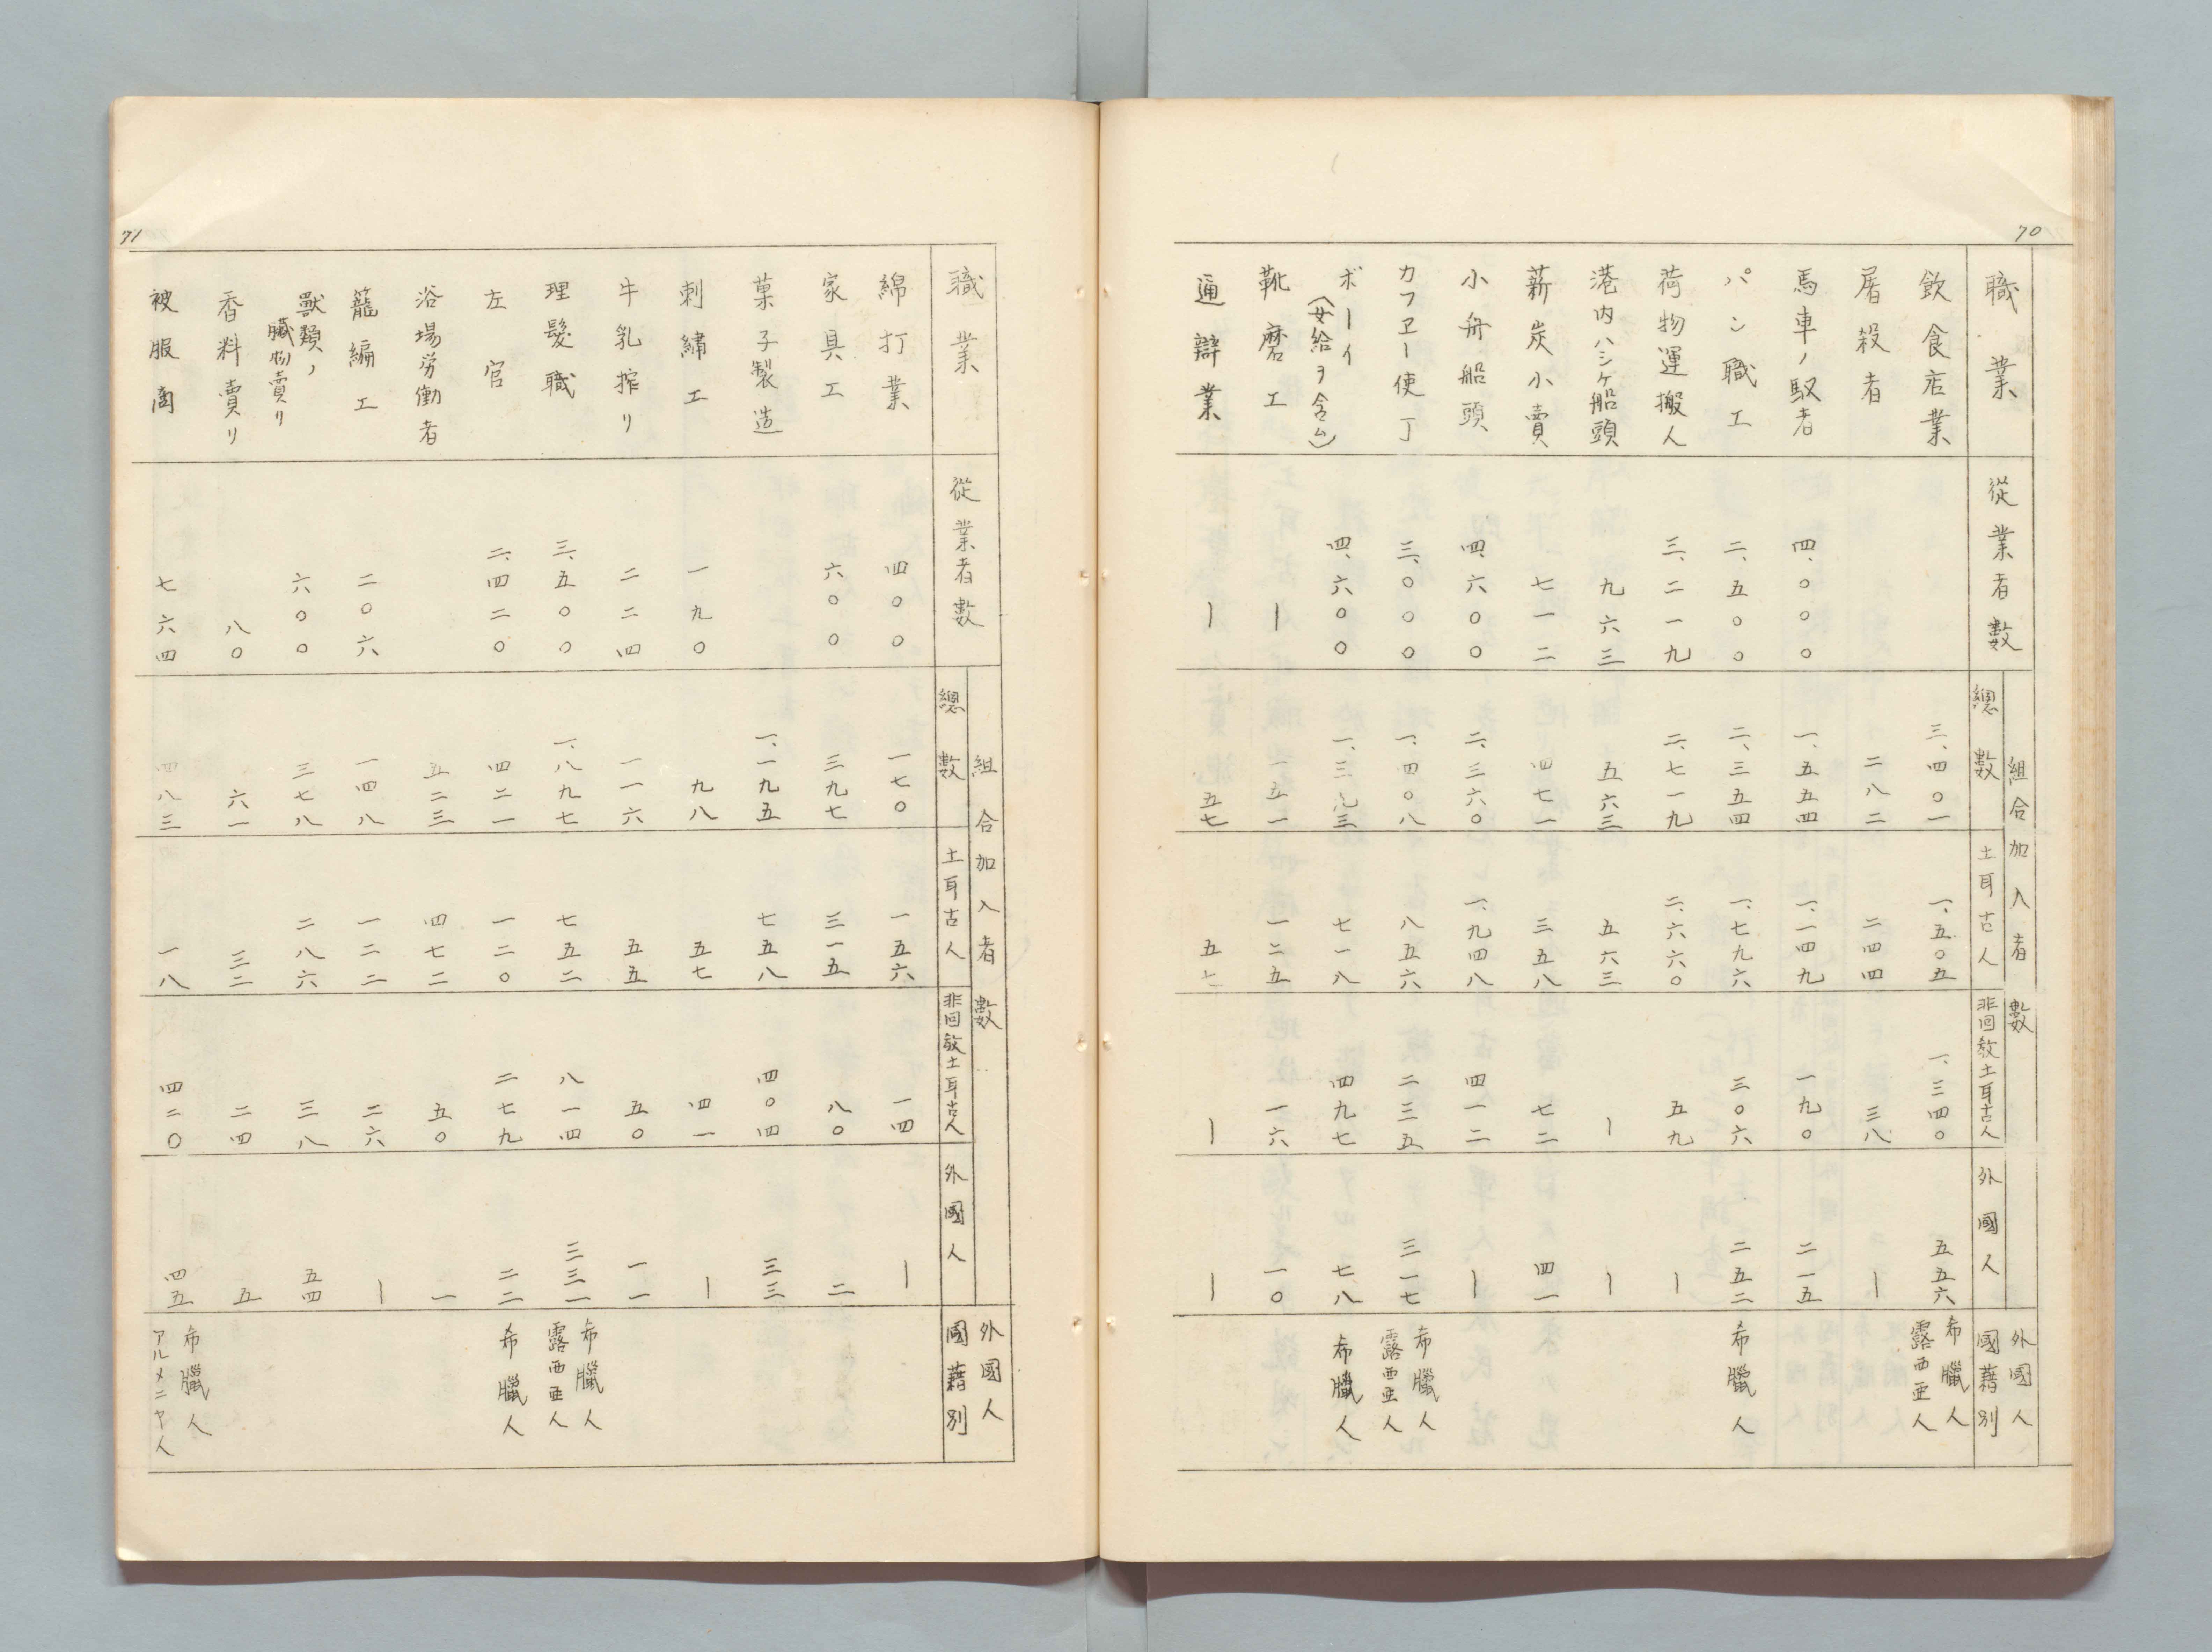 70
職業 從業者數 組合加入者數 總數 土耳古人 非回敎土耳古人 外國人 外國人國籍別
飲食店業 三、四〇一 一、五〇五 一、三四〇 五五六 希臘人 露西亜人
屠殺者 二八二 二四四 三八 ー
馬車ノ馭者 四、〇〇〇 一、五五四 一、一四九 一九〇 二一五
パン職工 二、五〇〇 二、三五四 一、七九六 三〇六 二五二 希臘人
荷物運搬人 三、二一九 二、七一九 二、六六〇 五九 ー
港内ハシケ船頭 九六三 五六三 五六三 ー ー
薪炭小賣 七一二 四七一 三五八 七二 四一
小舟船頭 四、六〇〇 二、三六〇 一、九四八 四一二 ー
カフヱー使丁 三、〇〇〇 一、四〇八 八五六 二三五 三一七 希臘人 露西亜人
ボーイ(女給ヲ含ム) 四、六〇〇 一、三九三 七一八 四九七 七八 希臘人
靴磨工 ー 一五一 一二五 一六 一〇
通辯業 ー 五七 五七 ー ー
71
職業 從業者數 組合加入者數 總數 土耳古人 非回敎土耳古人 外國人 外國人國籍別
綿打業 四〇〇 一七〇 一五六 一四 ー
家具工 六〇〇 三九七 三一五 八〇 二
菓子製造 一、一九五 七五八 四〇四 三三
刺繡工 一九〇 九八 五七 四一 ー
牛乳搾リ 二二四 一一六 五五 五〇 一一
理髮職 三、五〇〇 一、八九七 七五二 八一四 三三一 希臘人 露西亜人
左官 二、四二〇 四二一 一二〇 二七九 二二 希臘人
浴場労働者 五二三 四七二 五〇 一
籠編工 二〇六 一四八 一二二 二六 ー
獸類ノ臓物賣リ 六〇〇 三七八 二八六 三八 五四
香料賣リ 八〇 六一 三二 二四 五
被服商 七六四 四八三 一八 四二〇 四五 希臘人 アルメニヤ人